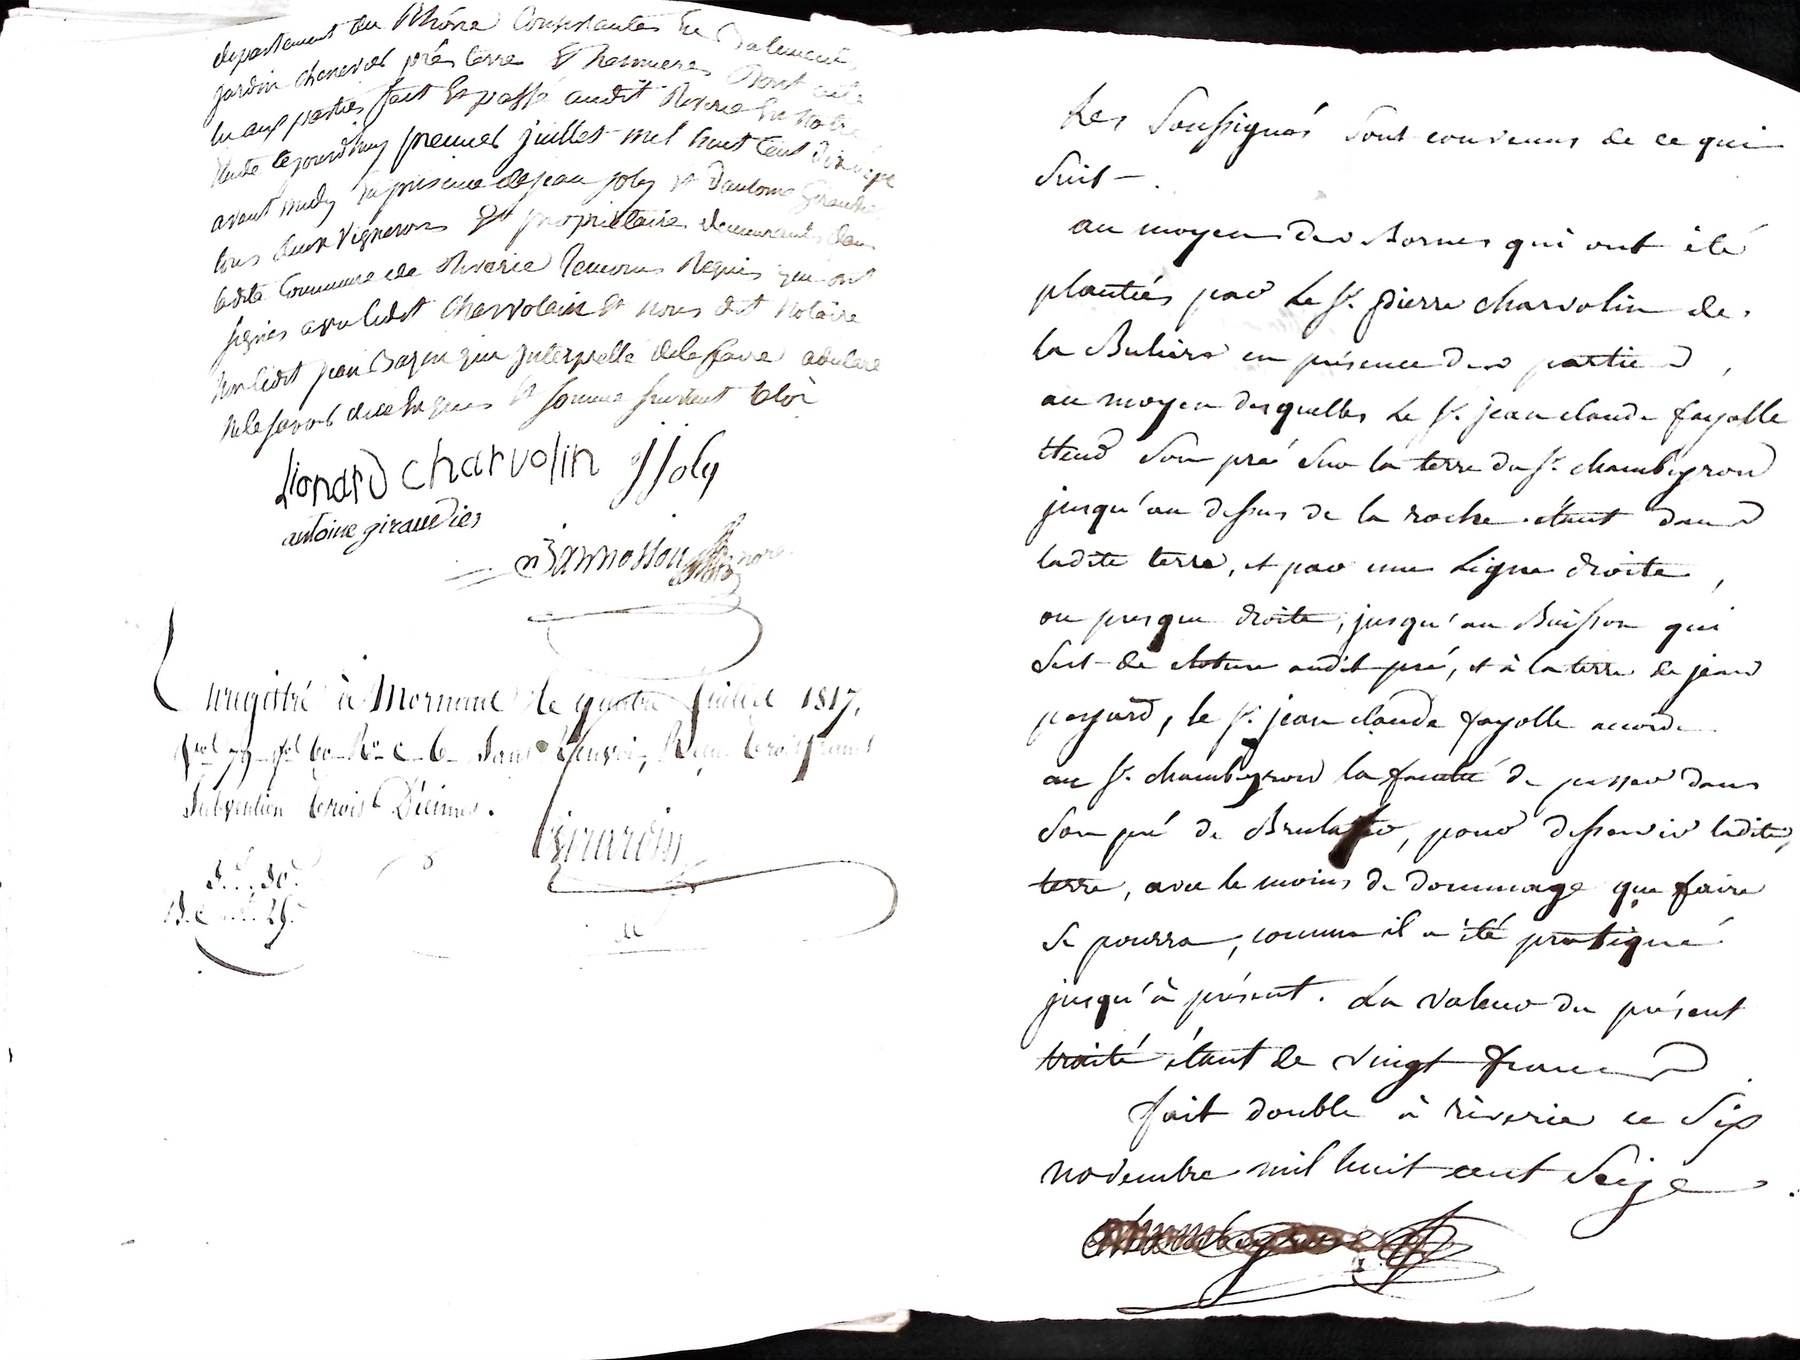 departement du Rhône Consistantes En Batiment,
jardin chenevier près terre Et hermieres Dont acte
lu aux parties fait Et passé audit Riverie En notre
Etude cejourd'huy premier juillet mil huit cent dix sept
avant midy En presence de jean joly Et d'antoine Giraudier
tous deux vignerons Et proprietaire demeurants dans
ladite Commune de Riverie temoins Requis qui ont
signés avec ledit Charvolin Et nous dit Notaire
non ledit jean qui Interpellé de le faire a declaré
ne le savoir de ce Enquis Et sommé suivant Loi
Lionard charvolin jjoly
antoine giraudier
Bannosson nore.
Enregistré à Mornant le quatre Juillet 1817,
vol 79 fol 60 Ro c 6 Sans Renvoi, Reçu trois francs
Subvention trois Décimes.
Girardin
3. 30.
Les Soussignés Sont convenus de ce qui
Suit -.
au moyen des Bornes qui ont été
plantées par Le Sr. pierre charvolin de
la Buliere en présence des parties,
au moyen desquelles Le Sr. jean claude fayolle
étend Son pré Sur la terre du Sr. chambeyron
jusqu'au dessus de la roche étant dans
ladite terre, et par une Ligne droite,
ou presque droite, jusqu'au Buisson qui
Sert de cloture audit pré, et à la terre de jean
poyard, le Sr. jean claude fayolle accorde
au Sr. chambeyron la faculté de passer dans
Son pré de, pour desservir ladite
terre, avec le moins de dommage que faire
Se pourra, comme il a été pratiqué
jusqu'à présent. La valeur du présent
traité étant de vingt francs
fait double à riverie ce Six
novembre mil huit cent Seize
chambeyron